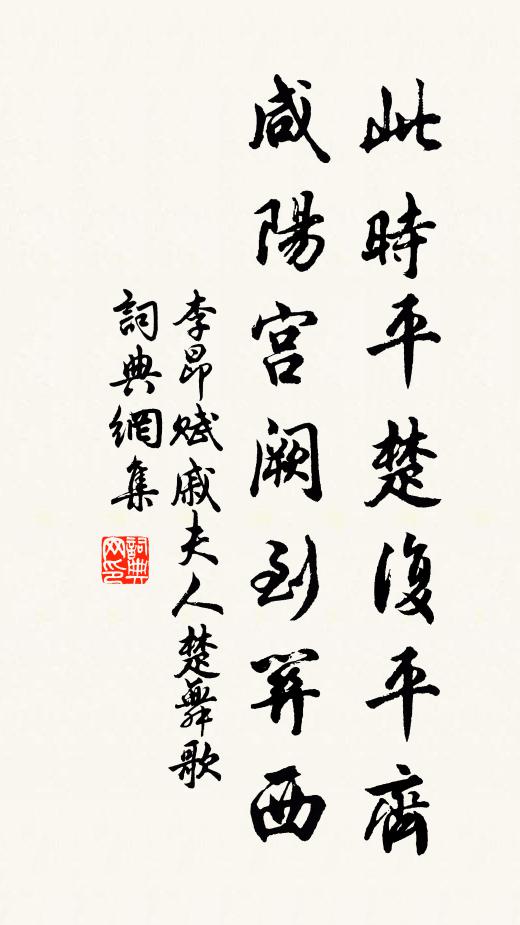 此時平楚復平齊
咸陽宮闕到關西
李昂賦戚夫人楚舞歌
詞典網集
詞典
网印